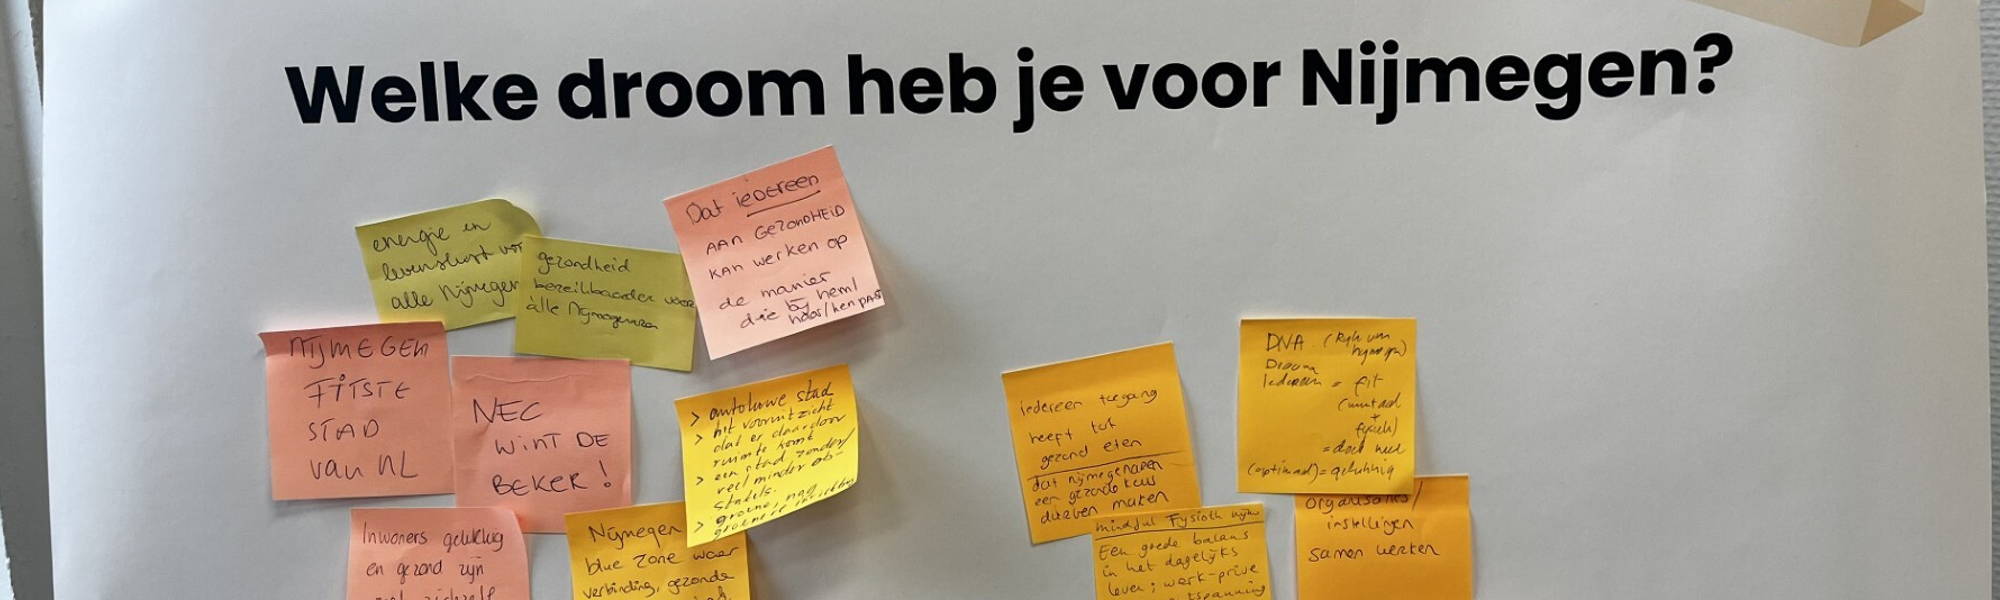 Welke droom heb je voor Nijmegen?
energie en
levenslust voor
alle Nijmegen
gezondheid
bereikbaarder voor
alle Nijmegenaren
Dat iedereen
AAN GEZONDHEID
KAN werken op
de manier
die bij hem/
haar/hen PAST
NIJMEGEN
FITSTE
STAD
van NL
NEC
WINT DE
BEKER!
> autoluwe stad
> het vooruitzicht
dat er daardoor
ruimte komt
> een stad zonder/
veel minder ob-
stakels.
> groene, nog
groenere
Inwoners gelukkig
en gezond zijn
met zichzelf
Nijmegen
blue zone waar
verbinding, gezonde
iedereen toegang
heeft tot
gezond eten
Dat nijmegenaren
een gezonde keus
durven maken
mindful Fysioth
Een goede balans
in het dagelijks
leven; werk-privé
ontspanning
DNA (Rijk van
Nijmegen)
Droom
Iedereen = fit
(mentaal
+
fysiek)
= doet mee
(optimaal) = gelukkig
organisaties/
instellingen
samen werken